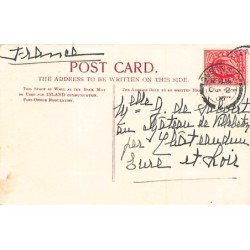 France
POST CARD.
THE ADDRESS TO BE WRITTEN ON THIS SIDE.
This space as well as the back may
be used for INLAND communication.
Post Office Regulations.
Melle J. de
au château de
par Châteaudun
Eure et Loir